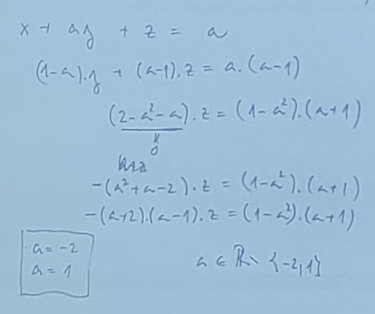 x + ay + z = a
(1-a).y + (a-1).z = a.(a-1)
(2-a²-a).z = (1-a²).(a+1)
-(a²+a-2).z = (1-a²).(a+1)
-(a+2).(a-1).z = (1-a²).(a+1)
a = -2
a = 1
a ∈ ℝ \ {-2,1}